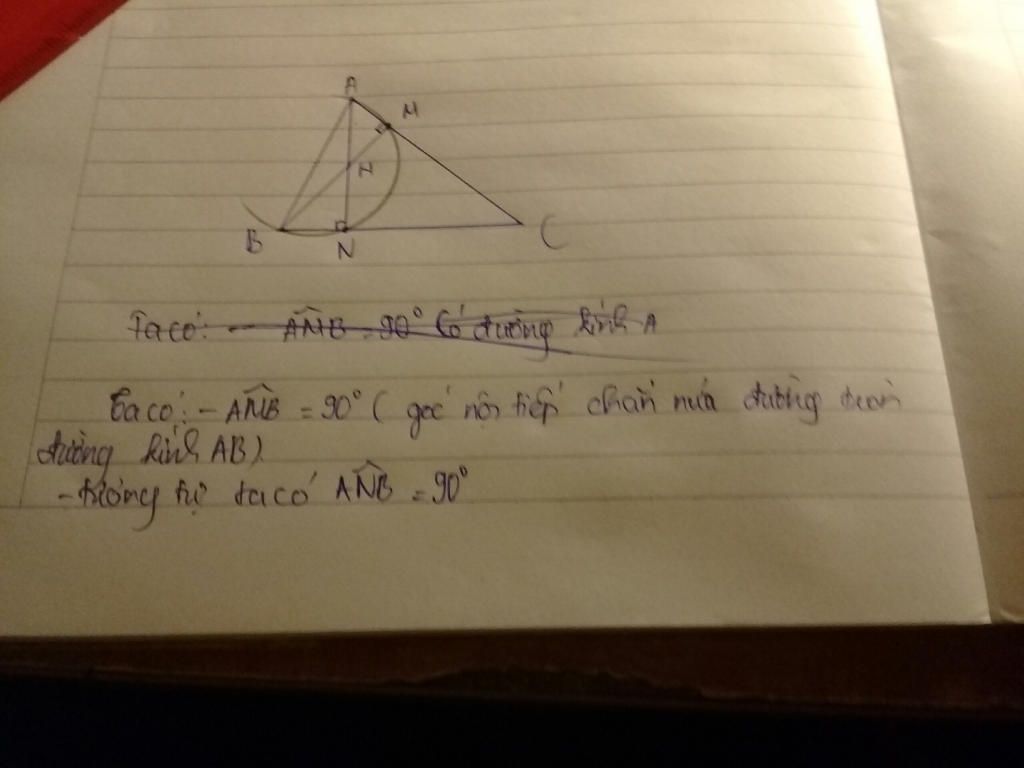 A
M
H
B
N
C
Ta có: - AMB = 90° Có đường kính A
Ta có: - AMB = 90° ( góc nội tiếp chắn nửa đường tròn
đường kính AB)
- tương tự ta có ANB = 90°